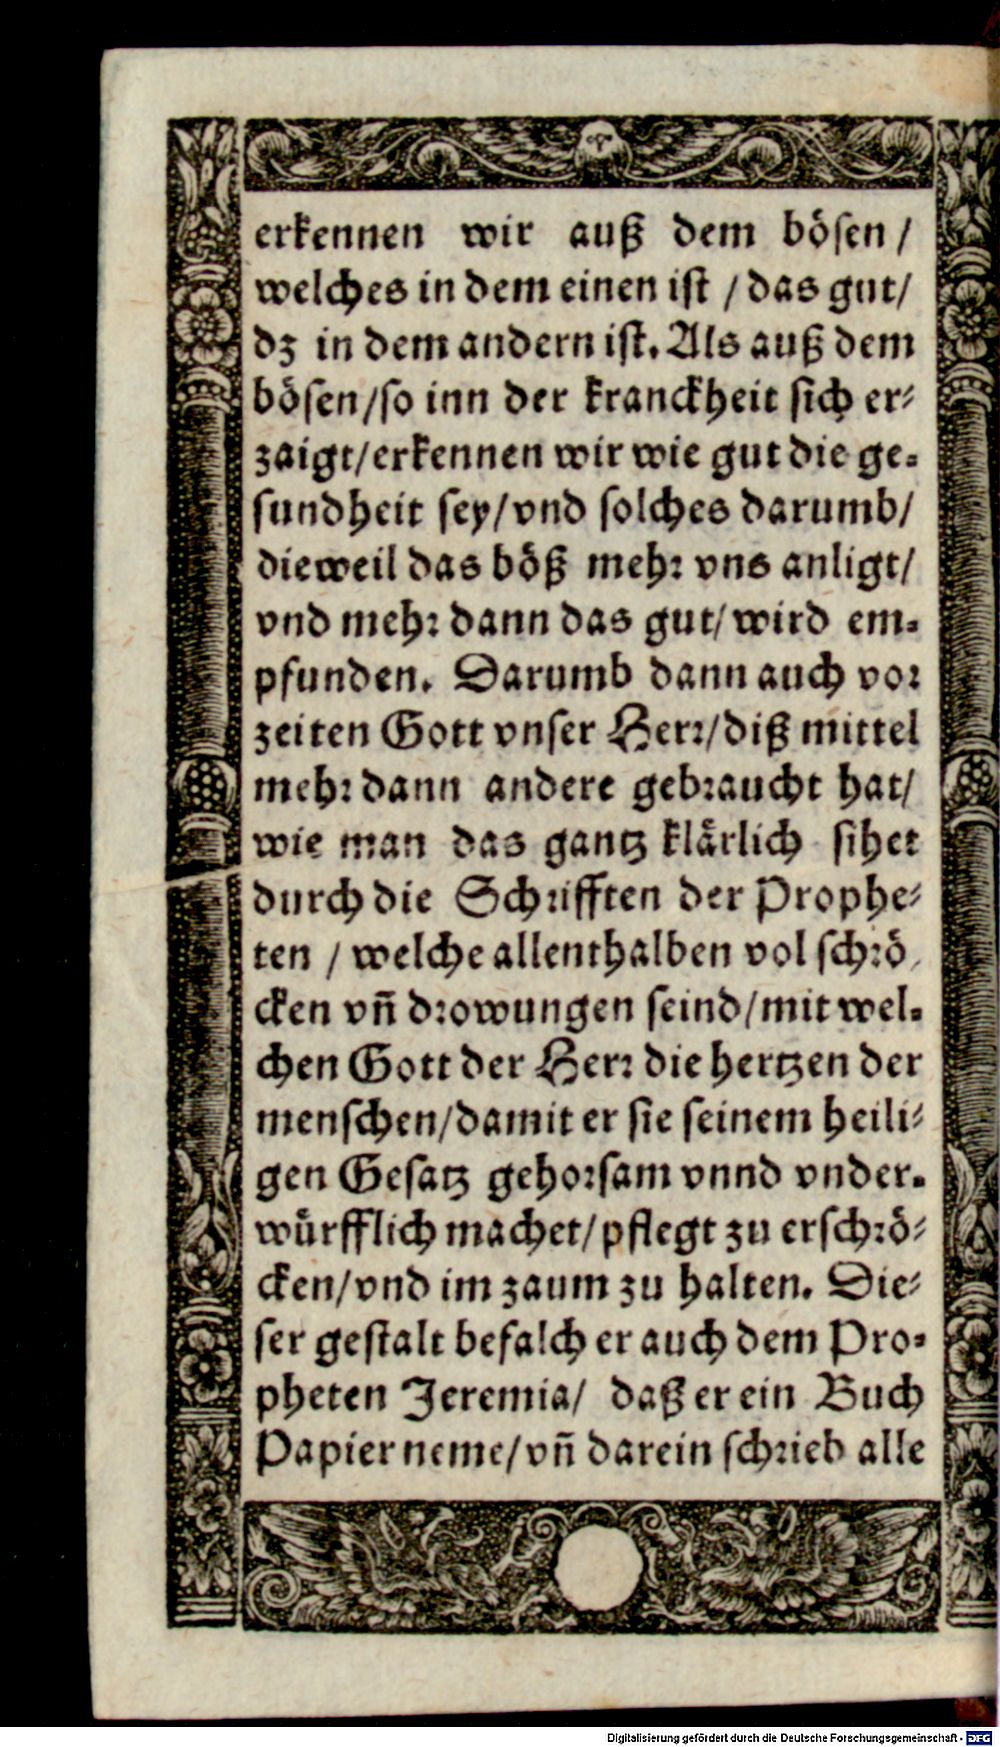 erkennen wir auß dem bösen /
welches in dem einen ist / das gut/
dz in dem andern ist. Als auß dem
bösen/so inn der kranckheit sich er⸗
zaigt/erkennen wir wie gut die ge⸗
sundheit sey/vnd solches darumb/
dieweil das böß mehr vns anligt/
vnd mehr dann das gut/wird em⸗
pfunden. Darumb dann auch vor
zeiten Gott vnser Herr/diß mittel
mehr dann andere gebraucht hat/
wie man das gantz klärlich sihet
durch die Schrifften der Prophe⸗
ten / welche allenthalben vol schrö⸗
cken vñ drowungen seind/mit wel⸗
chen Gott der Herr die hertzen der
menschen/damit er sie seinem heili⸗
gen Gesatz gehorsam vnnd vnder⸗
würfflich machet/pflegt zu erschrö⸗
cken/vnd im zaum zu halten. Die⸗
ser gestalt befalch er auch dem Pro⸗
pheten Jeremia/ daß er ein Buch
Papier neme/vñ darein schrieb alle
Digitalisierung gefördert durch die Deutsche Forschungsgemeinschaft - DFG